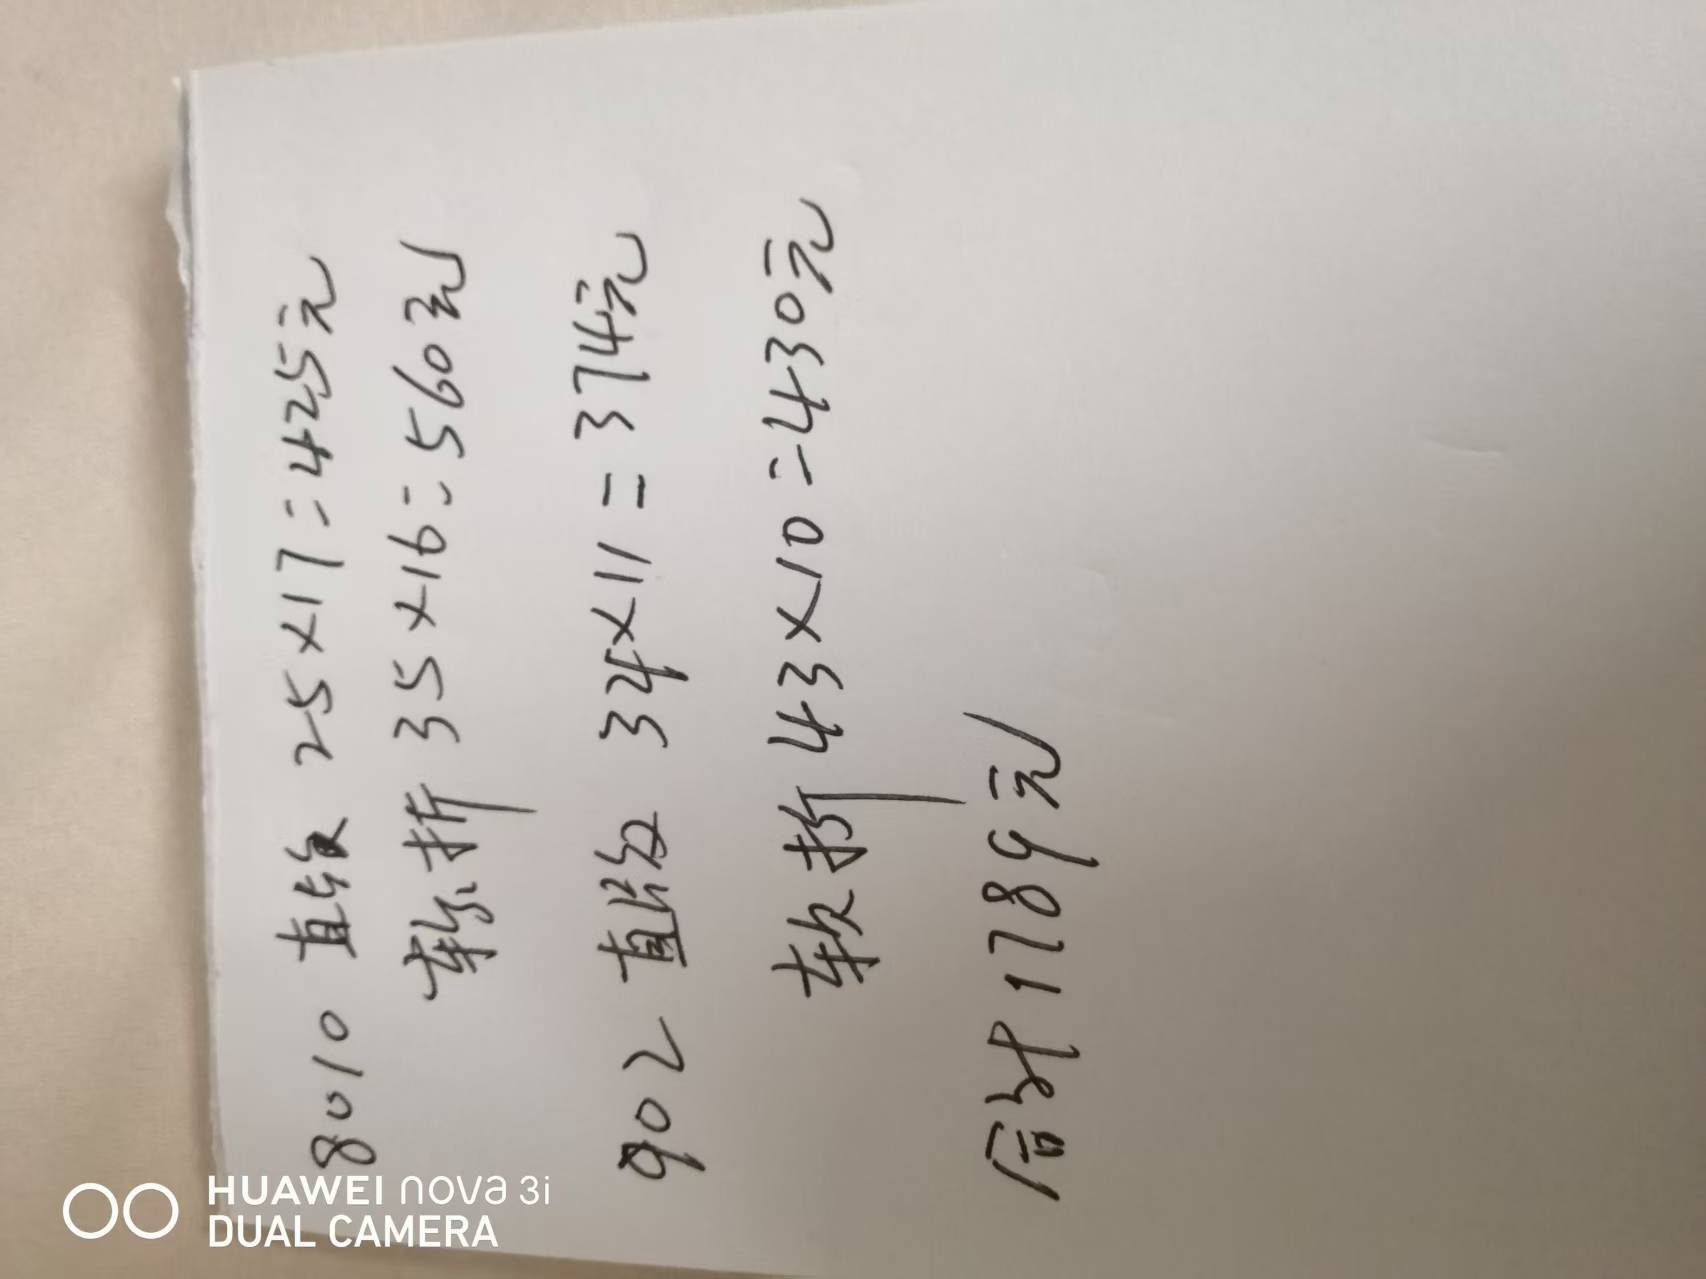 8010 直纹 25×17=425元
软折 35×16=560元
902 直纹 34×11=374元
软折 43×10=430元
合计1789元
HUAWEI nova 3i
DUAL CAMERA